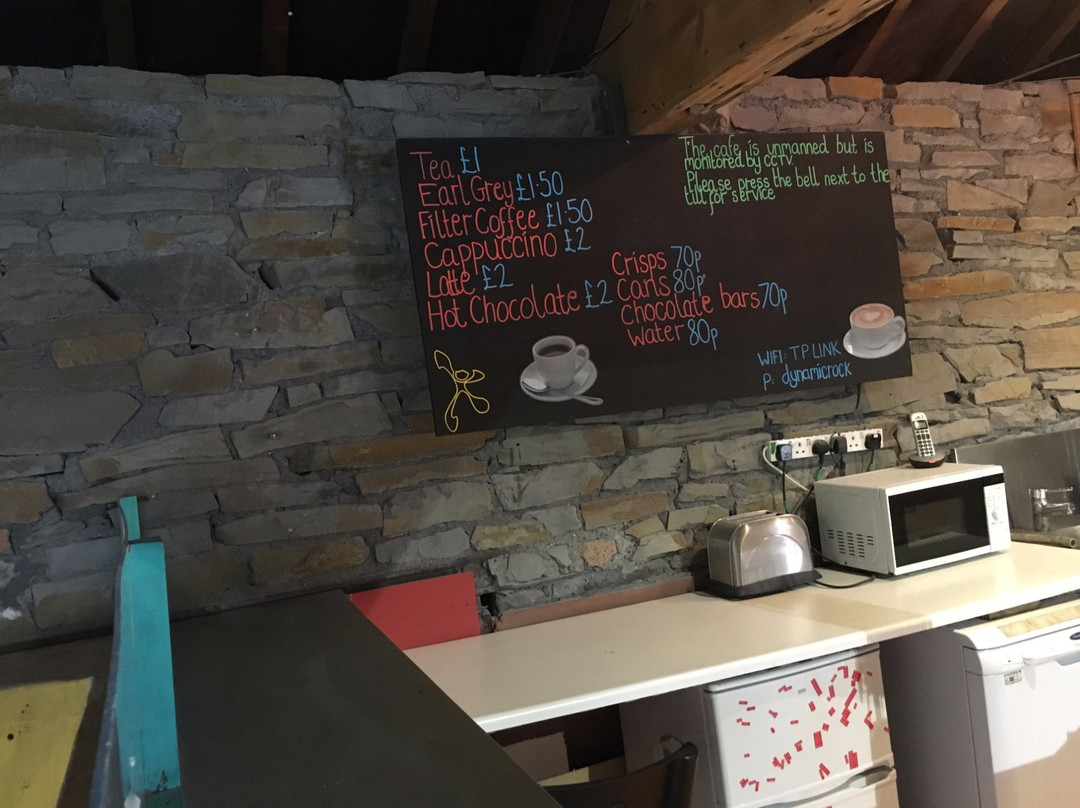 Tea £1
Earl Grey £1·50
Filter Coffee £1·50
Cappuccino £2
Latte £2
Hot Chocolate £2
Crisps 70p
Cans 80p
Chocolate bars 70p
Water 80p
The cafe is unmanned but is
monitored by CCTV.
Please press the bell next to the
till for service
WIFI: TP LINK
P: dynamicrock